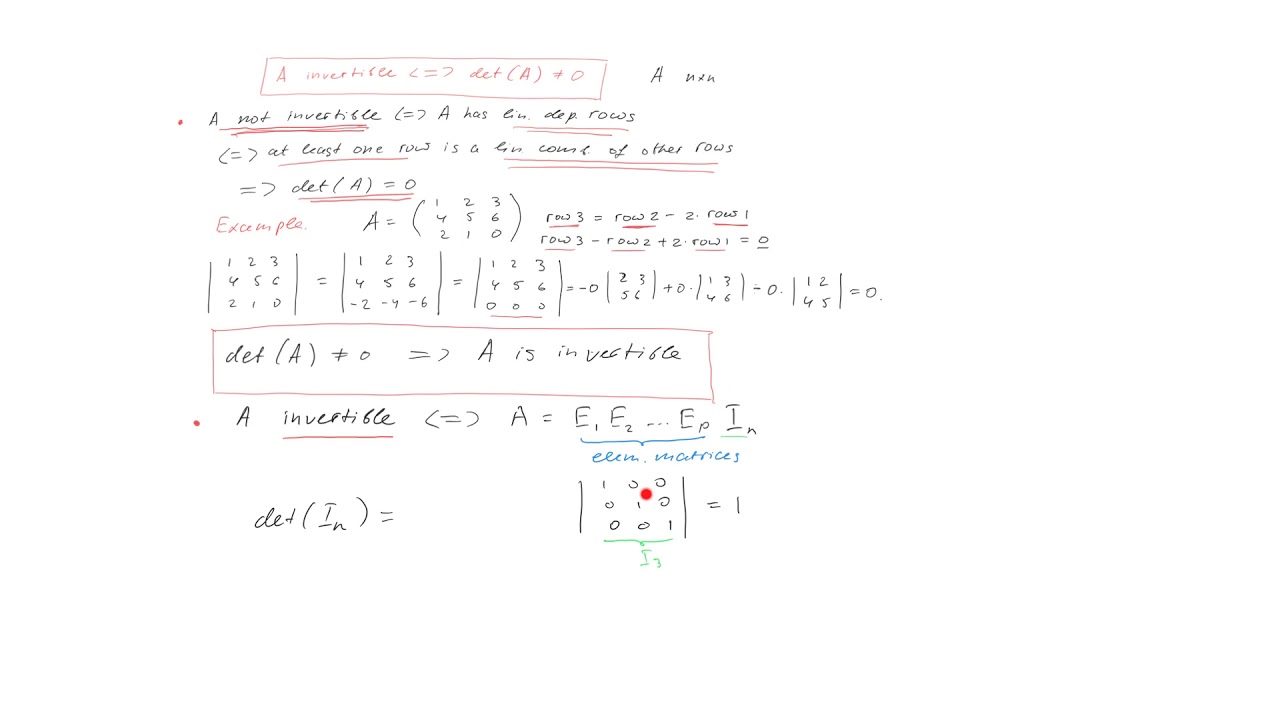 A invertible <=> det(A) ≠ 0    A n×n
• A not invertible <=> A has lin. dep. rows
<=> at least one row is a lin comb. of other rows
=> det(A) = 0
Example. A = ( 1 2 3 ; 4 5 6 ; 2 1 0 )  row 3 = row 2 - 2. row 1
row 3 - row 2 + 2. row 1 = 0
| 1 2 3 ; 4 5 6 ; 2 1 0 | = | 1 2 3 ; 4 5 6 ; -2 -4 -6 | = | 1 2 3 ; 4 5 6 ; 0 0 0 | = -0 | 2 3 ; 5 6 | + 0. | 1 3 ; 4 6 | - 0. | 1 2 ; 4 5 | = 0.
det(A) ≠ 0 => A is invertible
• A invertible <=> A = E₁ E₂ ... Eₚ Iₙ
elem. matrices
det(Iₙ) =    | 1 0 0 ; 0 1 0 ; 0 0 1 | = 1
I₃